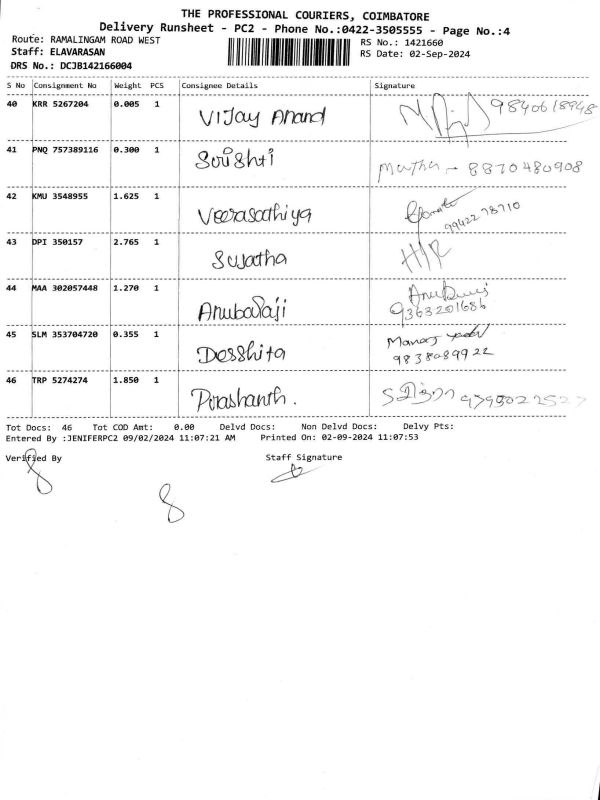 THE PROFESSIONAL COURIERS, COIMBATORE
Delivery Runsheet - PC2 - Phone No.:0422-3505555 - Page No.:4
Route: RAMALINGAM ROAD WEST RS No.: 1421660
Staff: ELAVARASAN RS Date: 02-Sep-2024
DRS No.: DCJB142166004
S No Consignment No Weight PCS Consignee Details Signature
40 KRR 5267204 0.005 1 Vijay Anand 9840618948
41 PNQ 757389116 0.300 1 Srishti 8870480908
42 KMU 3548955 1.625 1 Veerasathiya 9942278710
43 DPI 350157 2.765 1 Sujatha H/R
44 MAA 302057448 1.270 1 Anubalaji
9363201686
45 SLM 353704720 0.355 1 Desshita Manoj yadav
9838089922
46 TRP 5274274 1.850 1 Prashanth. 9795022527
Tot Docs: 46 Tot COD Amt: 0.00 Delvd Docs: Non Delvd Docs: Delvy Pts:
Entered By :JENIFERPC2 09/02/2024 11:07:21 AM Printed On: 02-09-2024 11:07:53
Verified By Staff Signature